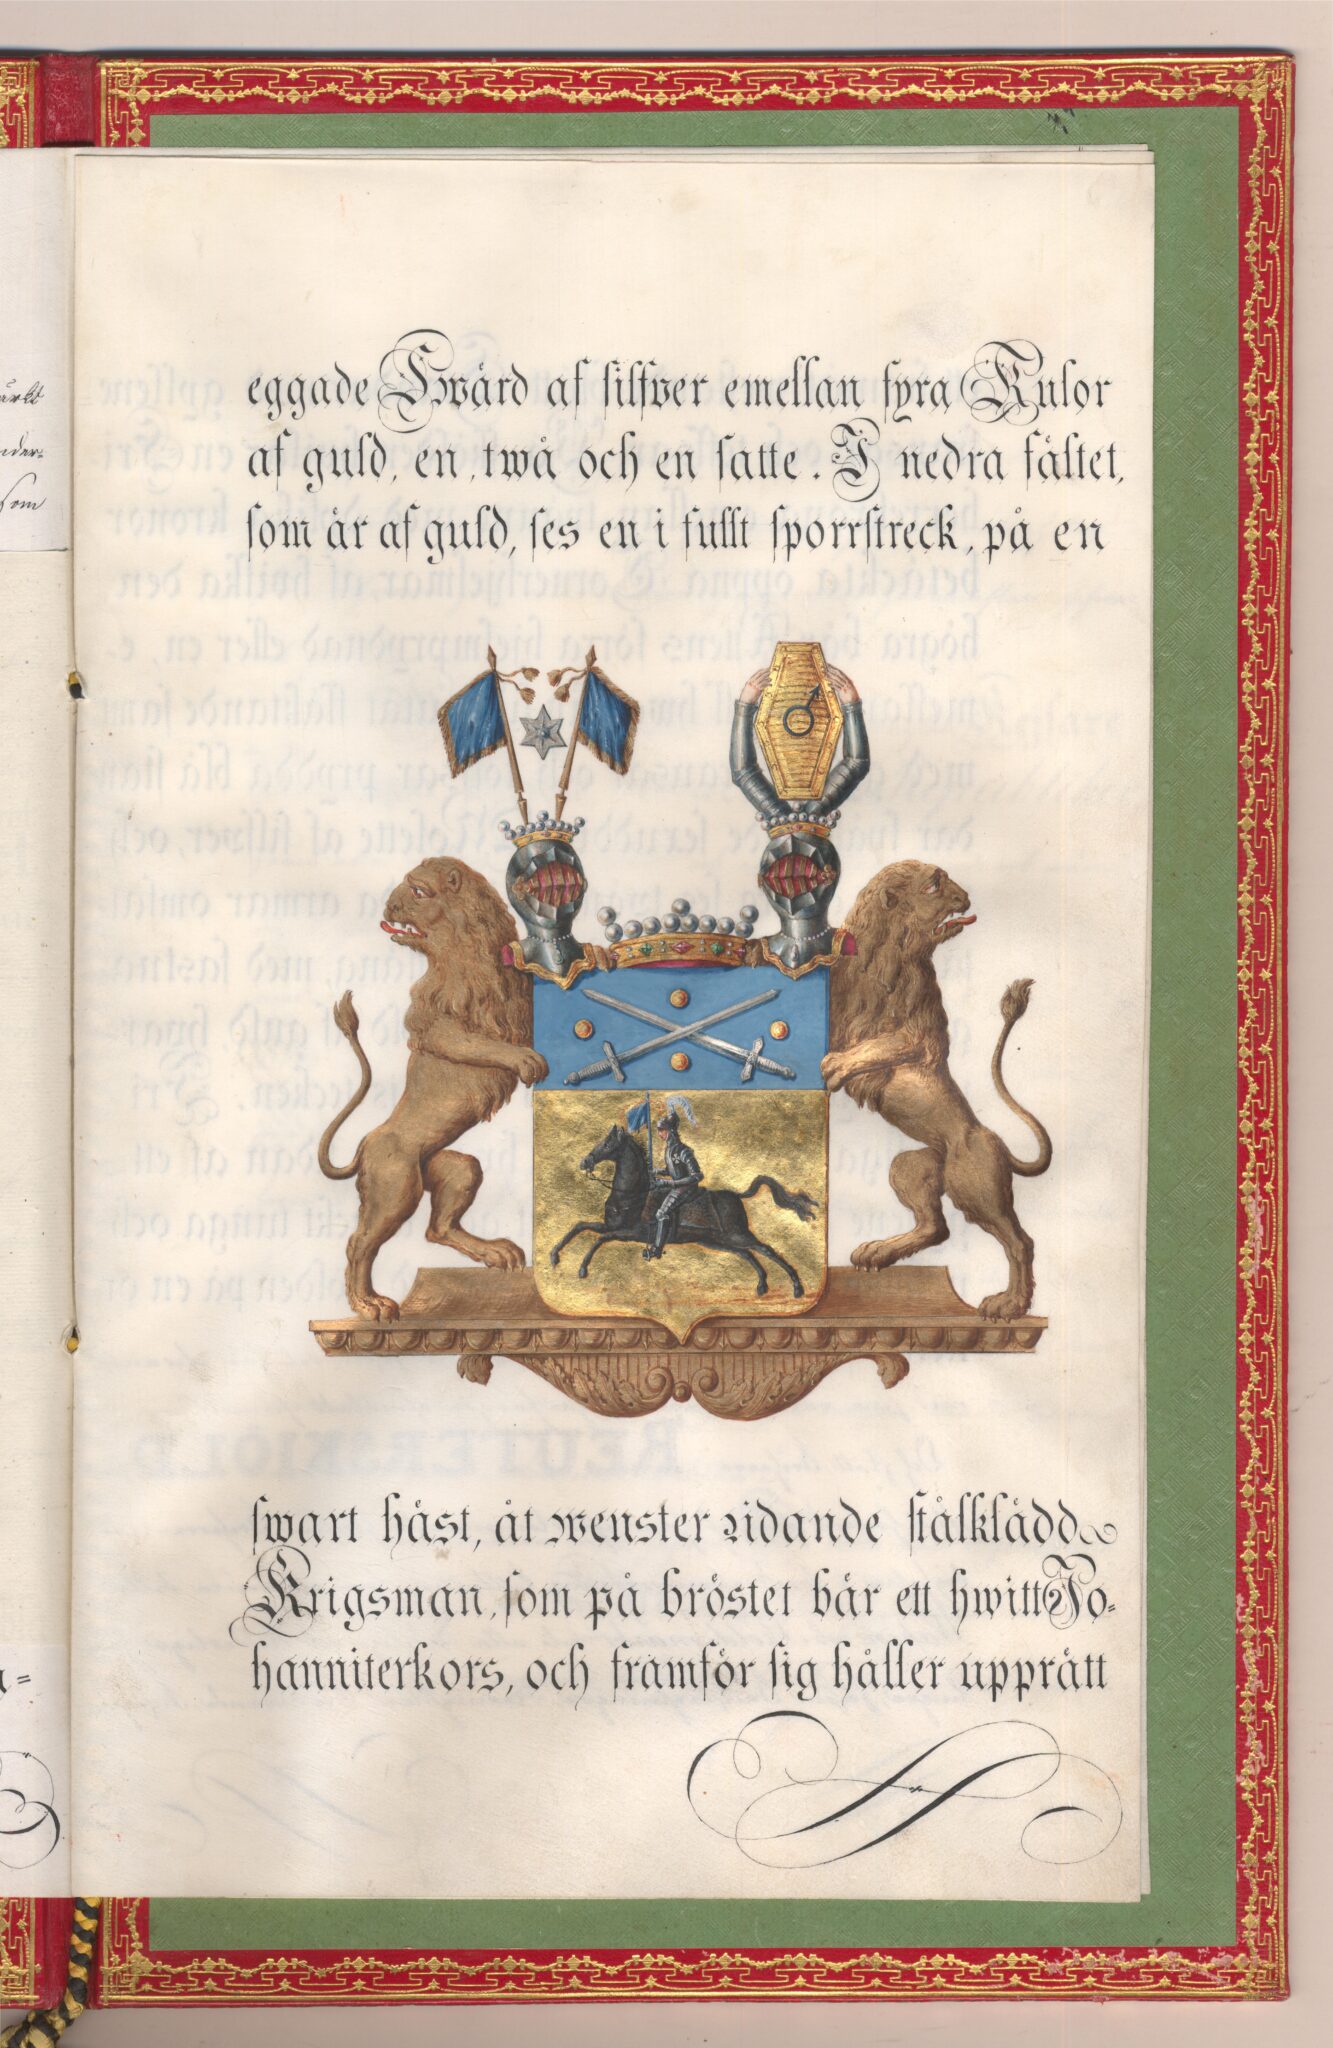 eggade Swärd af silfver emellan fyra Kulor
af guld, en, twå och en satte. I nedra fältet,
som är af guld, ses en i fullt sporrstreck, på en
swart häst, åt wenster ridande stålklädd
Krigsman, som på bröstet bär ett hwitt Jo=
hanniterkors, och framför sig håller upprätt
ärkt
nder=
som
REUTERSKIÖLD